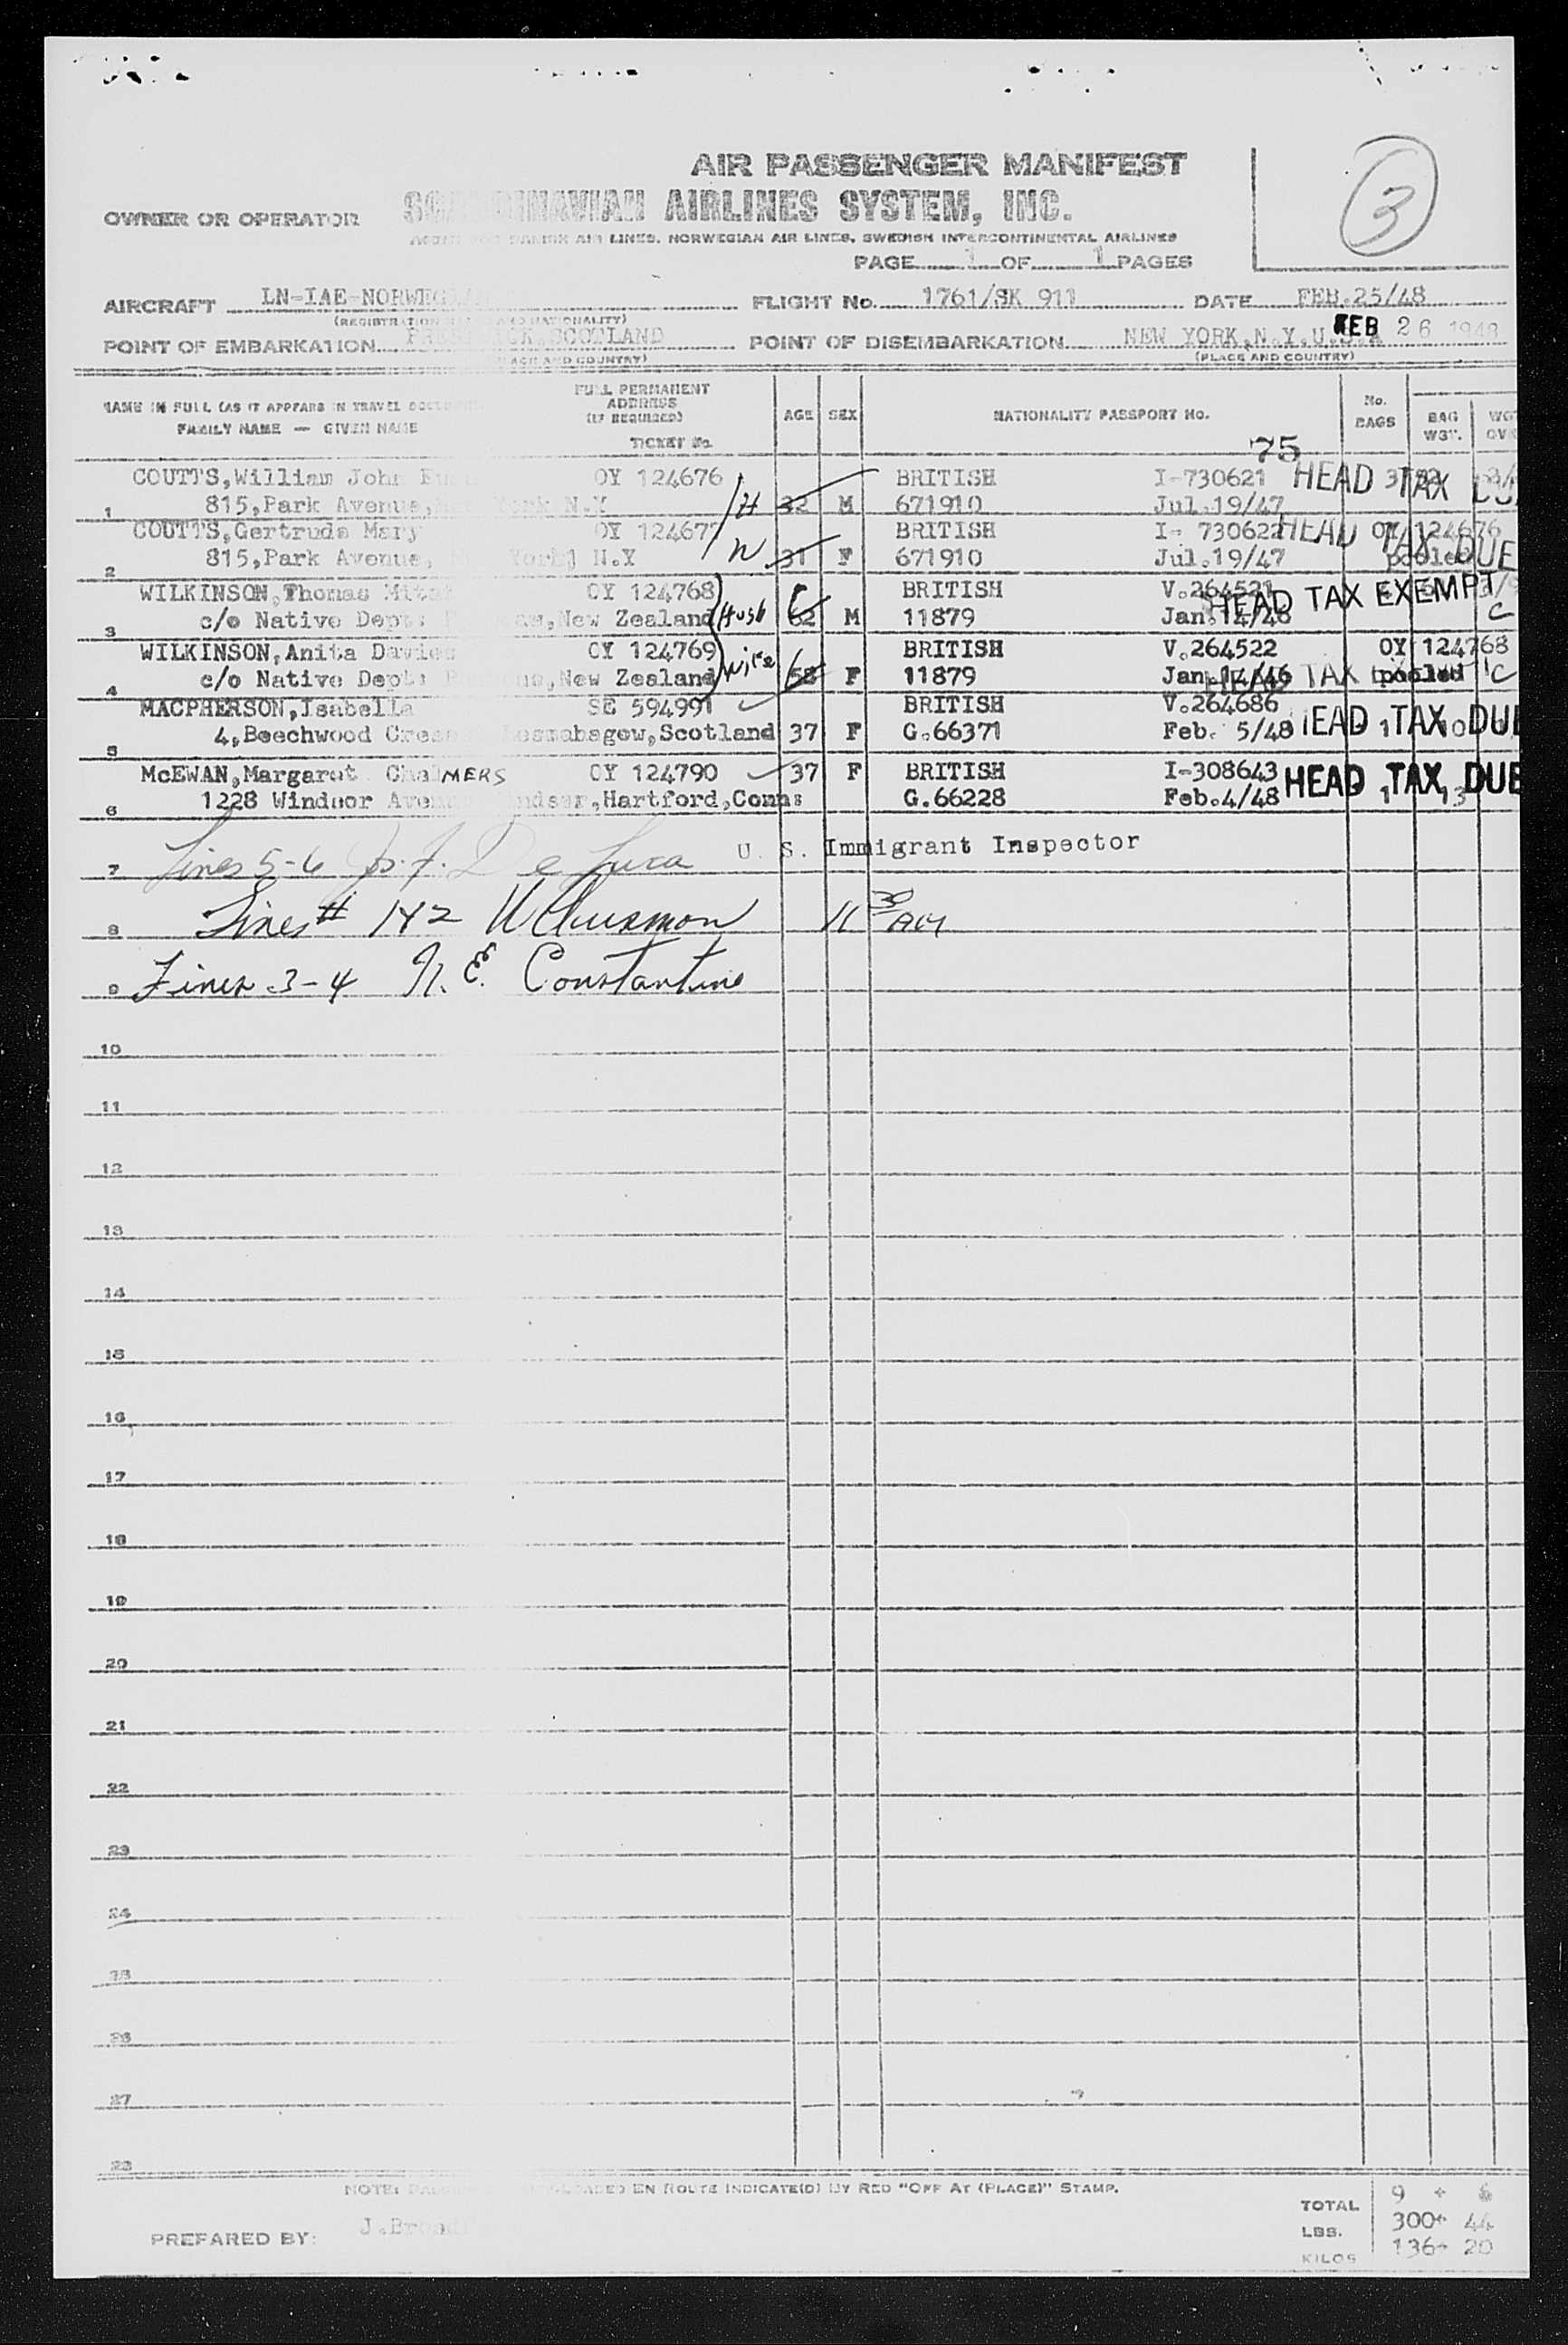 AIR PASSENGER MANIFEST
3
OWNER OR OPERATOR SCANDINAVIAN AIRLINES SYSTEM, INC.
AGENT FOR DANISH AIR LINES. NORWEGIAN AIR LINES. SWEDISH INTERCONTINENTAL AIRLINES
PAGE 1 OF 1 PAGES
AIRCRAFT LN-IAE-NORWEG FLIGHT No. 1761/SK 911 DATE FEB.25/48
(REGISTRATION AND NATIONALITY)
POINT OF EMBARKATION PRESTWICK, SCOTLAND POINT OF DISEMBARKATION NEW YORK,N.Y.U.S.A FEB 26 1948
(PLACE AND COUNTRY) (PLACE AND COUNTRY)
NAME IN FULL (AS IT APPEARS IN TRAVEL DOCUMENT)
FAMILY NAME — GIVEN NAME
FULL PERMANENT
ADDRESS
(IF REQUIRED)
TICKET No.
AGE SEX NATIONALITY PASSPORT No. No. BAGS BAG WGT.
75
COUTTS,William John OY 124676 BRITISH I-730621 HEAD TAX
1 815,Park Avenue, York N.Y H 32 M 671910 Jul.19/47
COUTTS,Gertrude Mary OY 124677 BRITISH I- 730622 HEAD TAX DUE OY 124676
2 815,Park Avenue, York N.Y W 31 F 671910 Jul.19/47 pooled
WILKINSON,Thomas OY 124768 BRITISH V.264521 HEAD TAX EXEMPT
3 c/o Native Dept: ,New Zealand Husb 62 M 11879 Jan.14/48 C
WILKINSON,Anita Davies OY 124769 BRITISH V.264522 OY 124768
4 c/o Native Dept: ,New Zealand Wife 58 F 11879 Jan.14/46 HEAD TAX pooled C
MACPHERSON,Isabella SE 594991 BRITISH V.264686
5 4,Beechwood Cres Lesmahagow,Scotland 37 F G.66371 Feb. 5/48 HEAD TAX DUE 1 10
McEWAN,Margaret ChalMERS OY 124790 37 F BRITISH I-308643 HEAD TAX DUE
6 1228 Windsor Aven Windsor,Hartford,Conn: G.66228 Feb.4/48 1 13
7 Lines 5-6 Jos. F. De Luca U. S. Immigrant Inspector
8 Lines # 1+2 11 30 AM
9 Lines 3-4 N. E. Constantine
10
11
12
13
14
15
16
17
18
19
20
21
22
23
24
25
26
27
28
NOTE: LOADED EN ROUTE INDICATE(D) BY RED "OFF AT (PLACE)" STAMP.
TOTAL 9 + 6
LBS. 300+ 44
KILOS 136+ 20
PREPARED BY: J.Broad